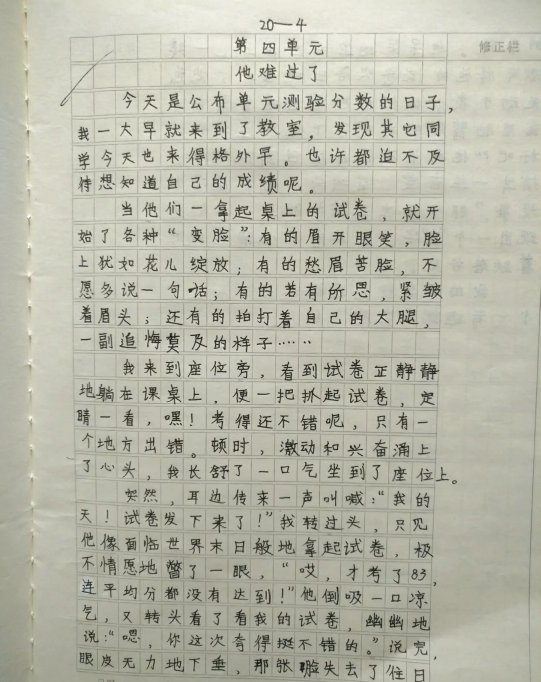 20—4
第四单元
修正栏
他难过了
今天是公布单元测验分数的日子，
我一大早就来到了教室，发现其它同
学今天也来得格外早。也许都迫不及
待想知道自己的成绩呢。
当他们一拿起桌上的试卷，就开
始了各种“变脸”：有的眉开眼笑，脸
上犹如花儿绽放；有的愁眉苦脸，不
愿多说一句话；有的若有所思，紧皱
着眉头；还有的拍打着自己的大腿，
一副追悔莫及的样子……
我来到座位旁，看到试卷正静静
地躺在课桌上，便一把抓起试卷，定
睛一看，嘿！考得还不错呢，只有一
个地方出错。顿时，激动和兴奋涌上
了心头，我长舒了一口气坐到了座位上。
突然，耳边传来一声叫喊：“我的
天！试卷发下来了！”我转过头，只见
他像面临世界末日般地拿起试卷，极
不情愿地瞥了一眼，“哎，才考了83，
连平均分都没有达到！”他倒吸一口凉
气，又转头看了看我的试卷，幽幽地
说：“嗯，你这次考得挺不错的。”说完，
眼皮无力地下垂，那张脸失去了往日